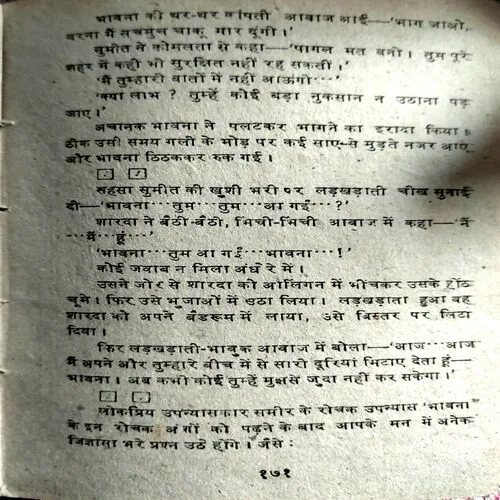 भावना की थर-थर कांपती आवाज आई—'भाग जाओ,
वरना मैं सचमुच चाकू मार दूंगी।'
सुमीत ने कोमलता से कहा—'पागल मत बनो। तुम पूरे
शहर में कहीं भी सुरक्षित नहीं रह सकतीं।'
'मैं तुम्हारी बातों में नहीं आऊंगी···'
'क्या लाभ ? तुम्हें कोई बड़ा नुकसान न उठाना पड़
जाए।'
अचानक भावना ने पलटकर भागने का इरादा किया।
ठीक उसी समय गली के मोड़ पर कई साए-से मुड़ते नजर आए
और भावना ठिठककर रुक गई।
सहसा सुमीत की खुशी भरी पर लड़खड़ाती चीख सुनाई
दी—'भावना···तुम···तुम···आ गईं···?'
शारदा ने बैठी-बैठी, भिंची-भिंची आवाज में कहा—'मैं
···मैं···हूं···'
'भावना···तुम आ गईं···भावना···!'
कोई जवाब न मिला अंधेरे में।
उसने जोर से शारदा को आलिंगन में भींचकर उसके होंठ
चूमे। फिर उसे भुजाओं में उठा लिया। लड़खड़ाता हुआ वह
शारदा को अपने बैडरूम में लाया, उसे बिस्तर पर लिटा
दिया।
फिर लड़खड़ाती-भावुक आवाज में बोला—'आज···आज
मैं अपने और तुम्हारे बीच में से सारी दूरियां मिटाए देता हूं—
भावना। अब कभी कोई तुम्हें मुझसे जुदा नहीं कर सकेगा।'
लोकप्रिय उपन्यासकार समीर के रोचक उपन्यास 'भावना'
के इन रोचक अंशों को पढ़ने के बाद आपके मन में अनेक
जिज्ञासा भरे प्रश्न उठे होंगे। जैसे :
१७१